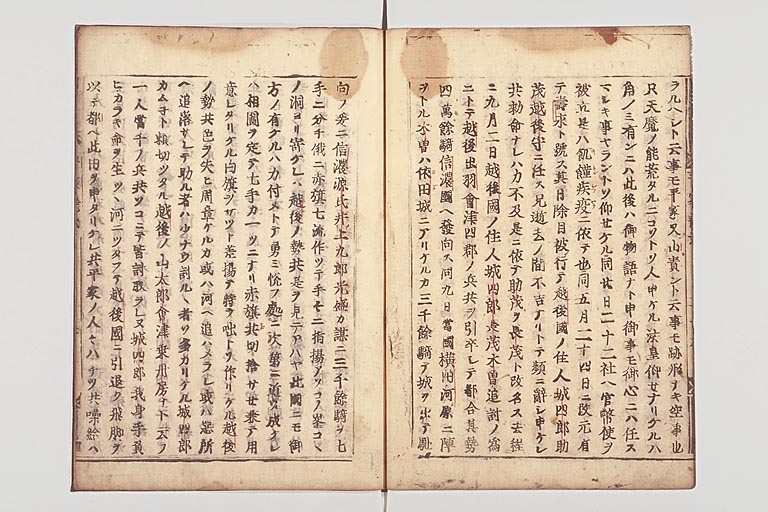 ラルヘシト云事モ平家又山責ント云事モ跡形ナキ空事也
只天魔ノ能荒タルニコソトソ人申ケル法皇仰せナリケルハ
角ノミ有ンニハ此後ハ御物詣ナト申御事モ御心ニハ任ス
マシキ事ヤラントソ仰せケル同廿日二十二社ヘ官幣使ヲ
被立是ハ飢饉疾疫ニ依テ也同五月二十四日ニ改元有
テ壽永ト號ス其日除目被行テ越後國ノ住人城四郎助
茂越後守ニ任ス兄逝去ノ間不吉ナリトテ頻ニ辞シ申ケレ
共勅命ナレハ力不及是ニ依テ助茂ヲ長茂ト改名ス去程
ニ九月二日越後國ノ住人城四郎長茂木曽追討ノ為
ニトテ越後出羽會津四郡ノ兵共ヲ引卒シテ都合其勢
四萬餘騎信濃國ヘ發向ス同九日當國横田河原ニ陣
ヲトル木曽ハ依田城ニアリケルカ三千餘騎テ城ヲ出テ馳
向ノ爰ニ信濃源氏井上九郎光盛カ謀ニ三千餘騎ヲ七
手ニ分チ俄ニ赤旗七流作ツテ手々ニ指揚アソコノ峯コヽ
ノ洞ヨリ寄ケレハ越後ノ勢共是ヲ見テアハヤ此國ニモ御
方ノ有ケルハ力付ヌトテ勇ミ悦フ處ニ次第ニ近ウ成ケレ
ハ相圖ヲ定テ七手カ一ツニナリ赤旗共切捨サせ兼テ用
意シタリケル白旗ヲサツト差揚テ時ヲ咄トソ作リケル越後
ノ勢共色ヲ失ヒ周章ケルカ或ハ河ヘ追ハメラレ或ハ惡所
ヘ追落サレテ助ル者ハ少ナウ討ルヽ者ソ多カリケル城四郎
カムネト頼切ツタル越後ノ山太郎會津ノ乗丹房ナト云フ
一人當千ノ兵共ソコニテ皆討取ラレヌ城四郎我身手負
ヒカラキ命ヲ生ツヽ河ニツタフテ越後國ニ引退ク飛脚ヲ
以テ都ヘ此由ヲ申タリケレ共平家ノ人々ハチツ共噪給ハ